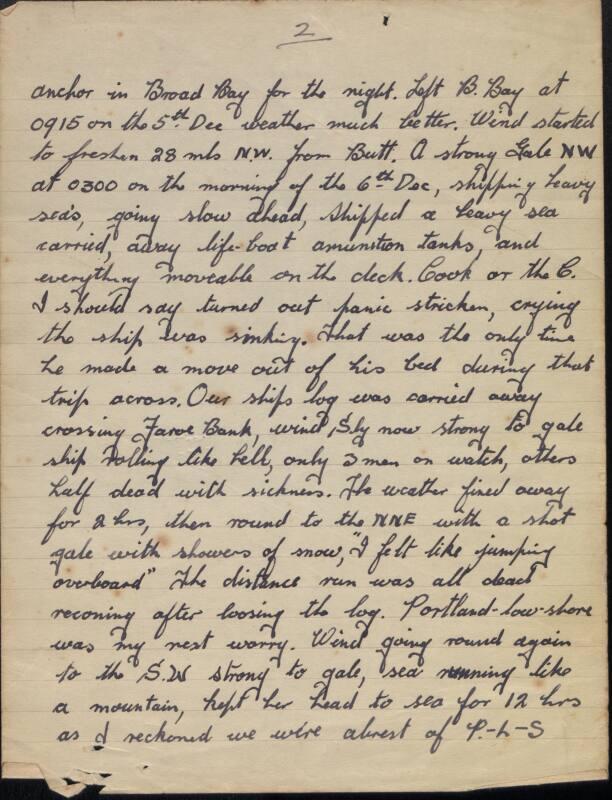 2
anchor in Broad Bay for the night. Left B. Bay at
0915 on the 5th Dec weather much better. Wind started
to freshen 28 mls NW. from Butt. A strong Gale NW
at 0300 on the morning of the 6th Dec, shipping heavy
sea's, going slow ahead, shipped a heavy sea
carried, away life-boat amunition tanks, and
everything moveable on the deck. Cook or the C.
I should say turned out panic stricken, crying
the ship was sinking. That was the only time
he made a move out of his bed during that
trip across. Our ships log was carried away
crossing Faroe Bank, wind S'ly now strong to gale
ship rolling like hell, only 3 men on watch, others
half dead with sickness. The weather fined away
for 2 hrs, then round to the NNE with a shot
gale with showers of snow, "I felt like jumping
overboard" The distance run was all dead
reconing after loosing the log. Portland-low-shore
was my nest worry. Wind going round again
to the S.W strong to gale, sea running like
a mountain, kept her head to sea for 12 hrs
as I reckoned we were abrest of P.-L-S